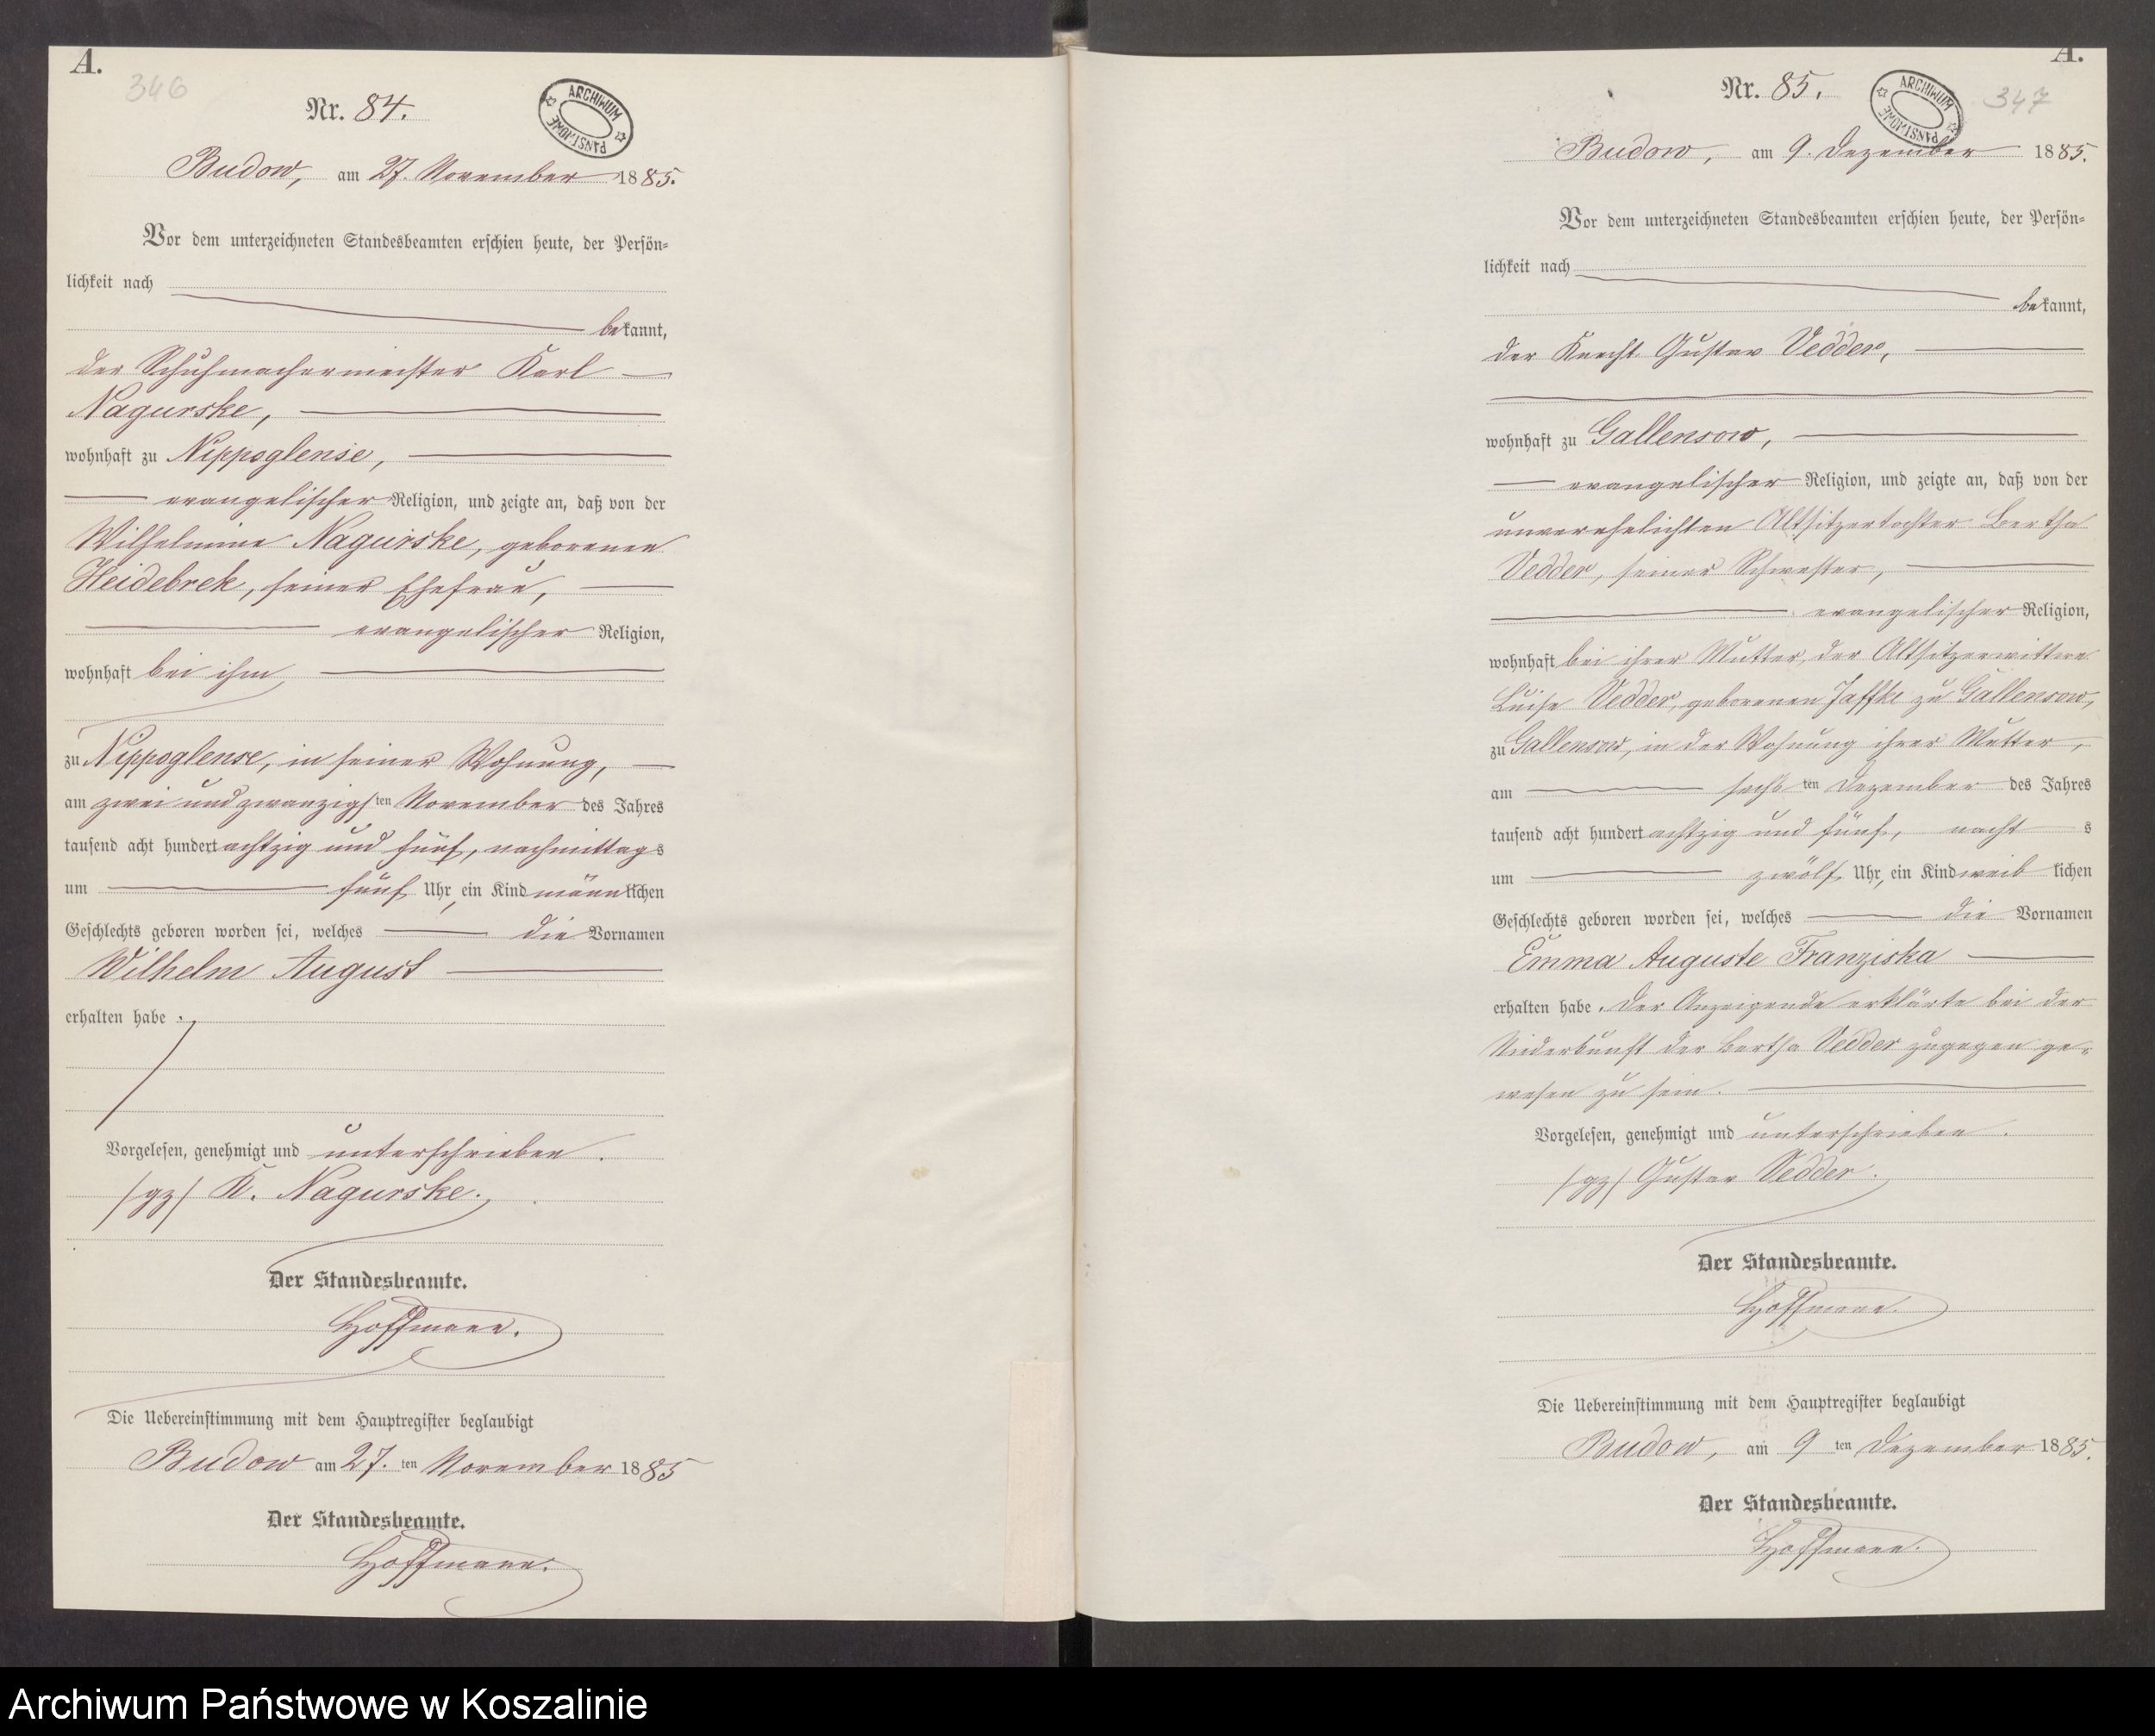 A.
346
Nr. 84.
ARCHIWUM PAŃSTWOWE
Budow, am 27. November 1885.
Vor dem unterzeichneten Standesbeamten erschien heute, der Persön=
lichkeit nach
bekannt,
der Schuhmachermeister Karl
Nagurske,
wohnhaft zu Nippoglense,
evangelischer Religion, und zeigte an, daß von der
Wilhelmine Nagurske, geborenen
Heidebrek, seiner Ehefrau,
evangelischer Religion,
wohnhaft bei ihm
zu Nippoglense, in seiner Wohnung,
am zwei und zwanzigsten November des Jahres
tausend acht hundert achtzig und fünf, nachmittags
um fünf Uhr, ein Kind männlichen
Geschlechts geboren worden sei, welches die Vornamen
Wilhelm August
erhalten habe.
Vorgelesen, genehmigt und unterschrieben.
/gz/ K. Nagurske.
Der Standesbeamte.
Hoffmann.
Die Uebereinstimmung mit dem Hauptregister beglaubigt
Budow am 27. ten November 1885
Der Standesbeamte.
Hoffmann.
A.
347
Nr. 85.
ARCHIWUM PAŃSTWOWE
Budow, am 9. Dezember 1885.
Vor dem unterzeichneten Standesbeamten erschien heute, der Persön=
lichkeit nach
bekannt,
der Knecht Gustav Vedder,
wohnhaft zu Gallensow,
evangelischer Religion, und zeigte an, daß von der
unverehelichten Altsitzertochter Bertha
Vedder, seiner Schwester,
evangelischer Religion,
wohnhaft bei ihrer Mutter, der Altsitzerwittwe
Luise Vedder, geborenen Jaffke zu Gallensow,
zu Gallensow, in der Wohnung ihrer Mutter,
am sechsten Dezember des Jahres
tausend acht hundert achtzig und fünf, nachts
um zwölf Uhr, ein Kind weiblichen
Geschlechts geboren worden sei, welches die Vornamen
Emma Auguste Franziska
erhalten habe. Der Anzeigende erklärte bei der
Niederkunft der Bertha Vedder zugegen ge=
wesen zu sein.
Vorgelesen, genehmigt und unterschrieben.
/gz/ Gustav Vedder.
Der Standesbeamte.
Hoffmann.
Die Uebereinstimmung mit dem Hauptregister beglaubigt
Budow, am 9 ten Dezember 1885.
Der Standesbeamte.
Hoffmann.
Archiwum Państwowe w Koszalinie